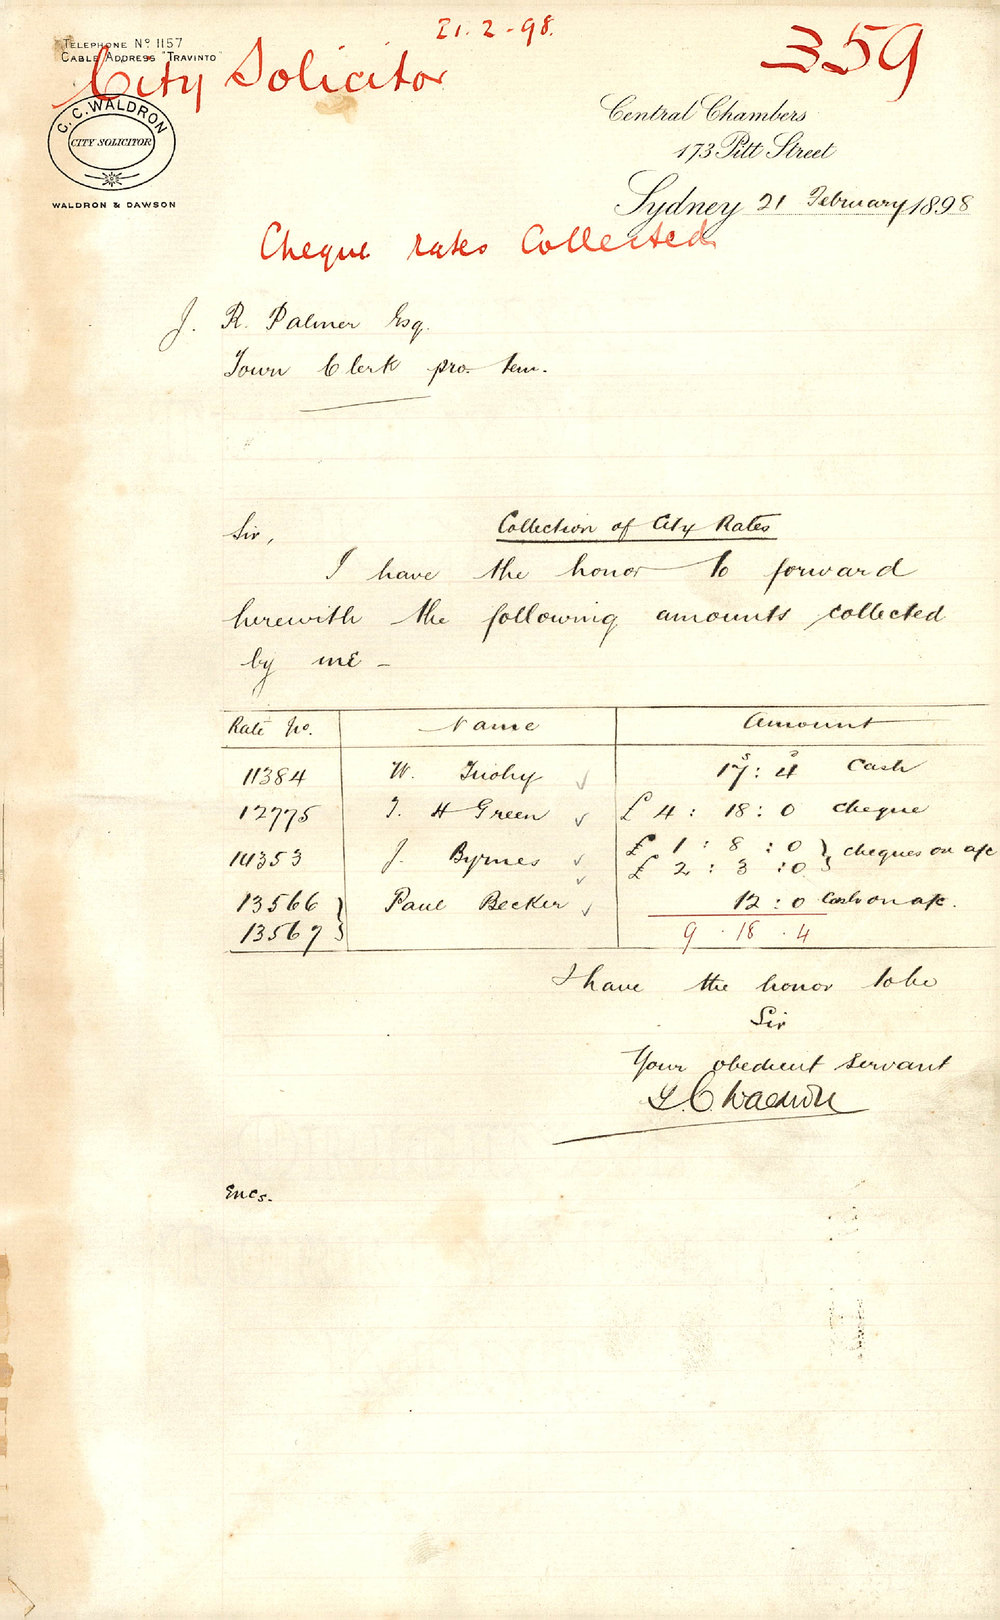 21.2-98.
359
TELEPHONE Nº 1157
CABLE ADDRESS "TRAVINTO"
City Solicitor
C. C. WALDRON
CITY SOLICITOR
WALDRON & DAWSON
Central Chambers
173 Pitt Street
Sydney 21 February 1898
Cheque rates Collected
J. R. Palmer Esq.
Town Clerk pro. tem.
Sir,
Collection of City Rates
I have the honor to forward
herewith the following amounts collected
by me -
Rate No. Name Amount
11384 W. 17s: 4d Cash
12775 T. H Green £4 : 18 : 0 cheque
14353 J. Byrnes £1 : 8 : 0 } cheques on a/c
£2 : 3 : 0 }
13566 } Paul Becker 12 : 0 Cash on a/c.
13567 } 9 . 18 . 4
I have the honor to be
Sir
Your obedient Servant
C Waldron
Encs.